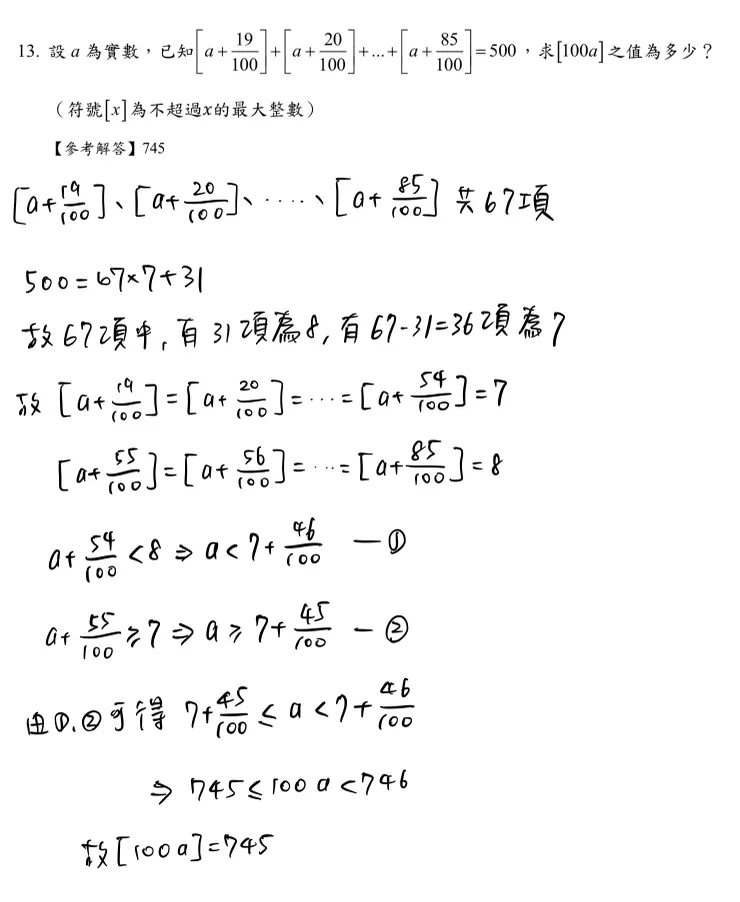 13. 設 a 為實數，已知[a+19/100]+[a+20/100]+...+[a+85/100]=500，求[100a]之值為多少？
（符號[x]為不超過x的最大整數）
【參考解答】745
[a+19/100]、[a+20/100]、‧‧‧‧‧、[a+85/100] 共67項
500=67×7+31
故67項中, 有31項為8, 有67-31=36項為7
故 [a+19/100]=[a+20/100]=‧‧‧=[a+54/100]=7
[a+55/100]=[a+56/100]=‧‧‧=[a+85/100]=8
a+54/100<8⇒a<7+46/100 —①
a+55/100≥7⇒a≥7+45/100 —②
由①.②可得 7+45/100≤a<7+46/100
⇒745≤100a<746
故[100a]=745